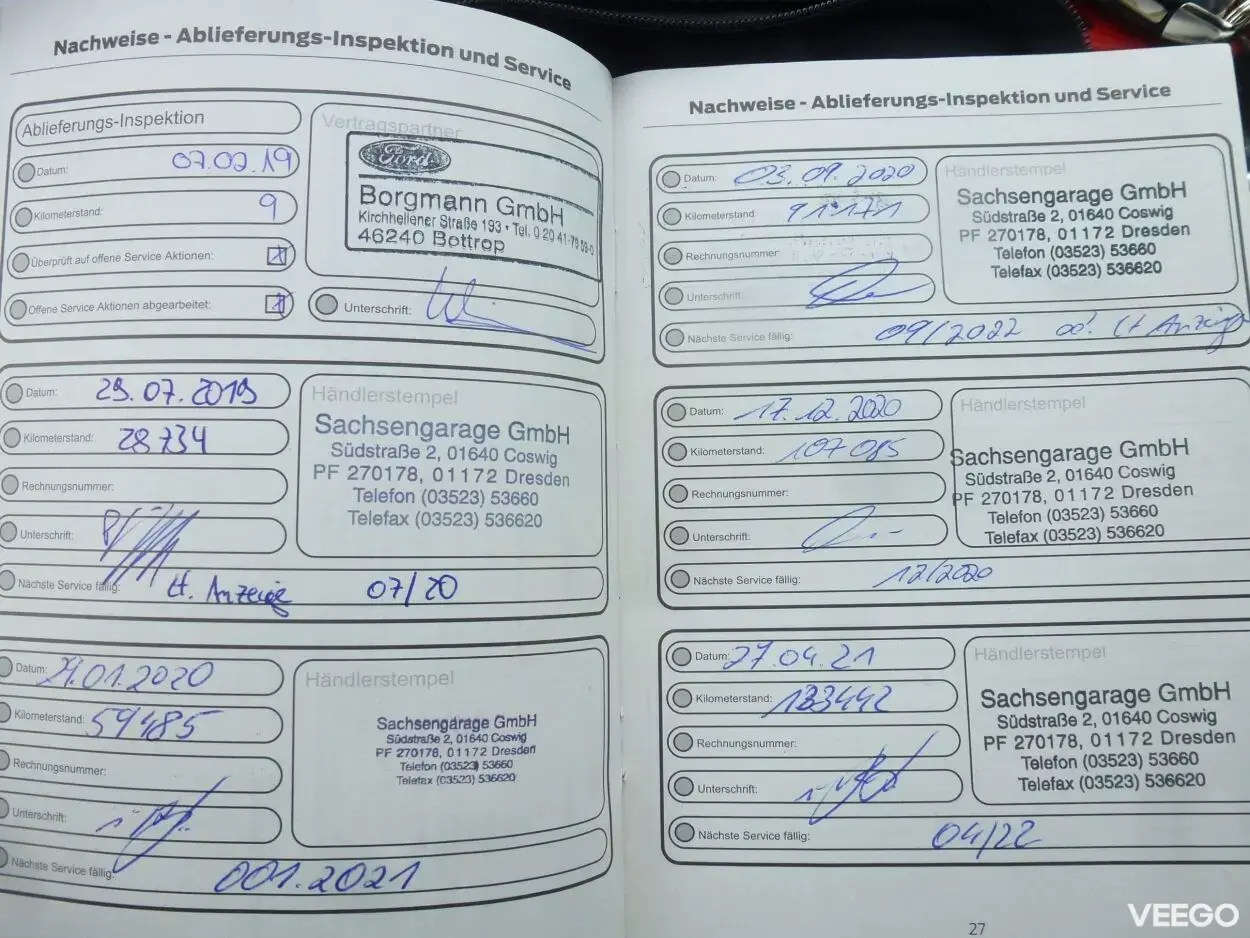 Nachweise - Ablieferungs-Inspektion und Service
Ablieferungs-Inspektion
Datum: 07.02.19
Kilometerstand: 9
Überprüft auf offene Service Aktionen:
Offene Service Aktionen abgearbeitet:
Vertragspartner
Ford
Borgmann GmbH
Kirchhellener Straße 193 • Tel. 0 20 41-
46240 Bottrop
Unterschrift:
Datum: 29.07.2019
Kilometerstand: 28734
Rechnungsnummer:
Unterschrift:
Nächste Service fällig: lt. Anzeige 07/20
Händlerstempel
Sachsengarage GmbH
Südstraße 2, 01640 Coswig
PF 270178, 01172 Dresden
Telefon (03523) 53660
Telefax (03523) 536620
Datum: 01.2020
Kilometerstand: 59485
Rechnungsnummer:
Unterschrift:
Nächste Service fällig: 001.2021
Händlerstempel
Sachsengarage GmbH
Südstraße 2, 01640 Coswig
PF 270178, 01172 Dresden
Telefon (03523) 53660
Telefax (03523) 536620
Nachweise - Ablieferungs-Inspektion und Service
Datum: 03.09.2020
Kilometerstand:
Rechnungsnummer
Unterschrift:
Nächste Service fällig: 09/2022 od. lt Anzeige
Händlerstempel
Sachsengarage GmbH
Südstraße 2, 01640 Coswig
PF 270178, 01172 Dresden
Telefon (03523) 53660
Telefax (03523) 536620
Datum: 17.12.2020
Kilometerstand: 107085
Rechnungsnummer:
Unterschrift:
Nächste Service fällig: 12/2020
Händlerstempel
Sachsengarage GmbH
Südstraße 2, 01640 Coswig
PF 270178, 01172 Dresden
Telefon (03523) 53660
Telefax (03523) 536620
Datum: 27.04.21
Kilometerstand: 133442
Rechnungsnummer:
Unterschrift:
Nächste Service fällig: 04/22
Händlerstempel
Sachsengarage GmbH
Südstraße 2, 01640 Coswig
PF 270178, 01172 Dresden
Telefon (03523) 53660
Telefax (03523) 536620
27
VEEGO